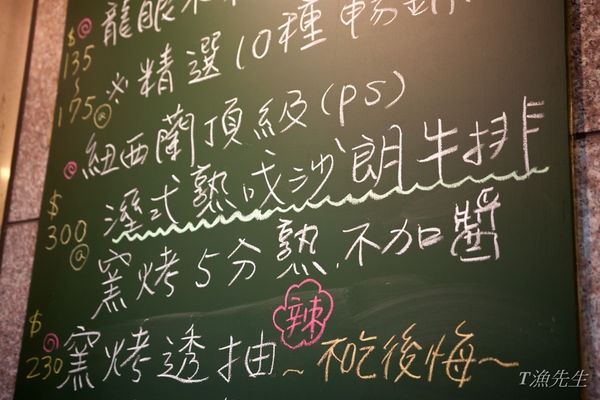 龍眼
$135~175 ※精選10種暢飲
紐西蘭頂級(ps)
溼式熟成沙朗牛排
$300 窯烤5分熟.不加醬
辣
$230 窯烤透抽~不吃後悔~
T漁先生